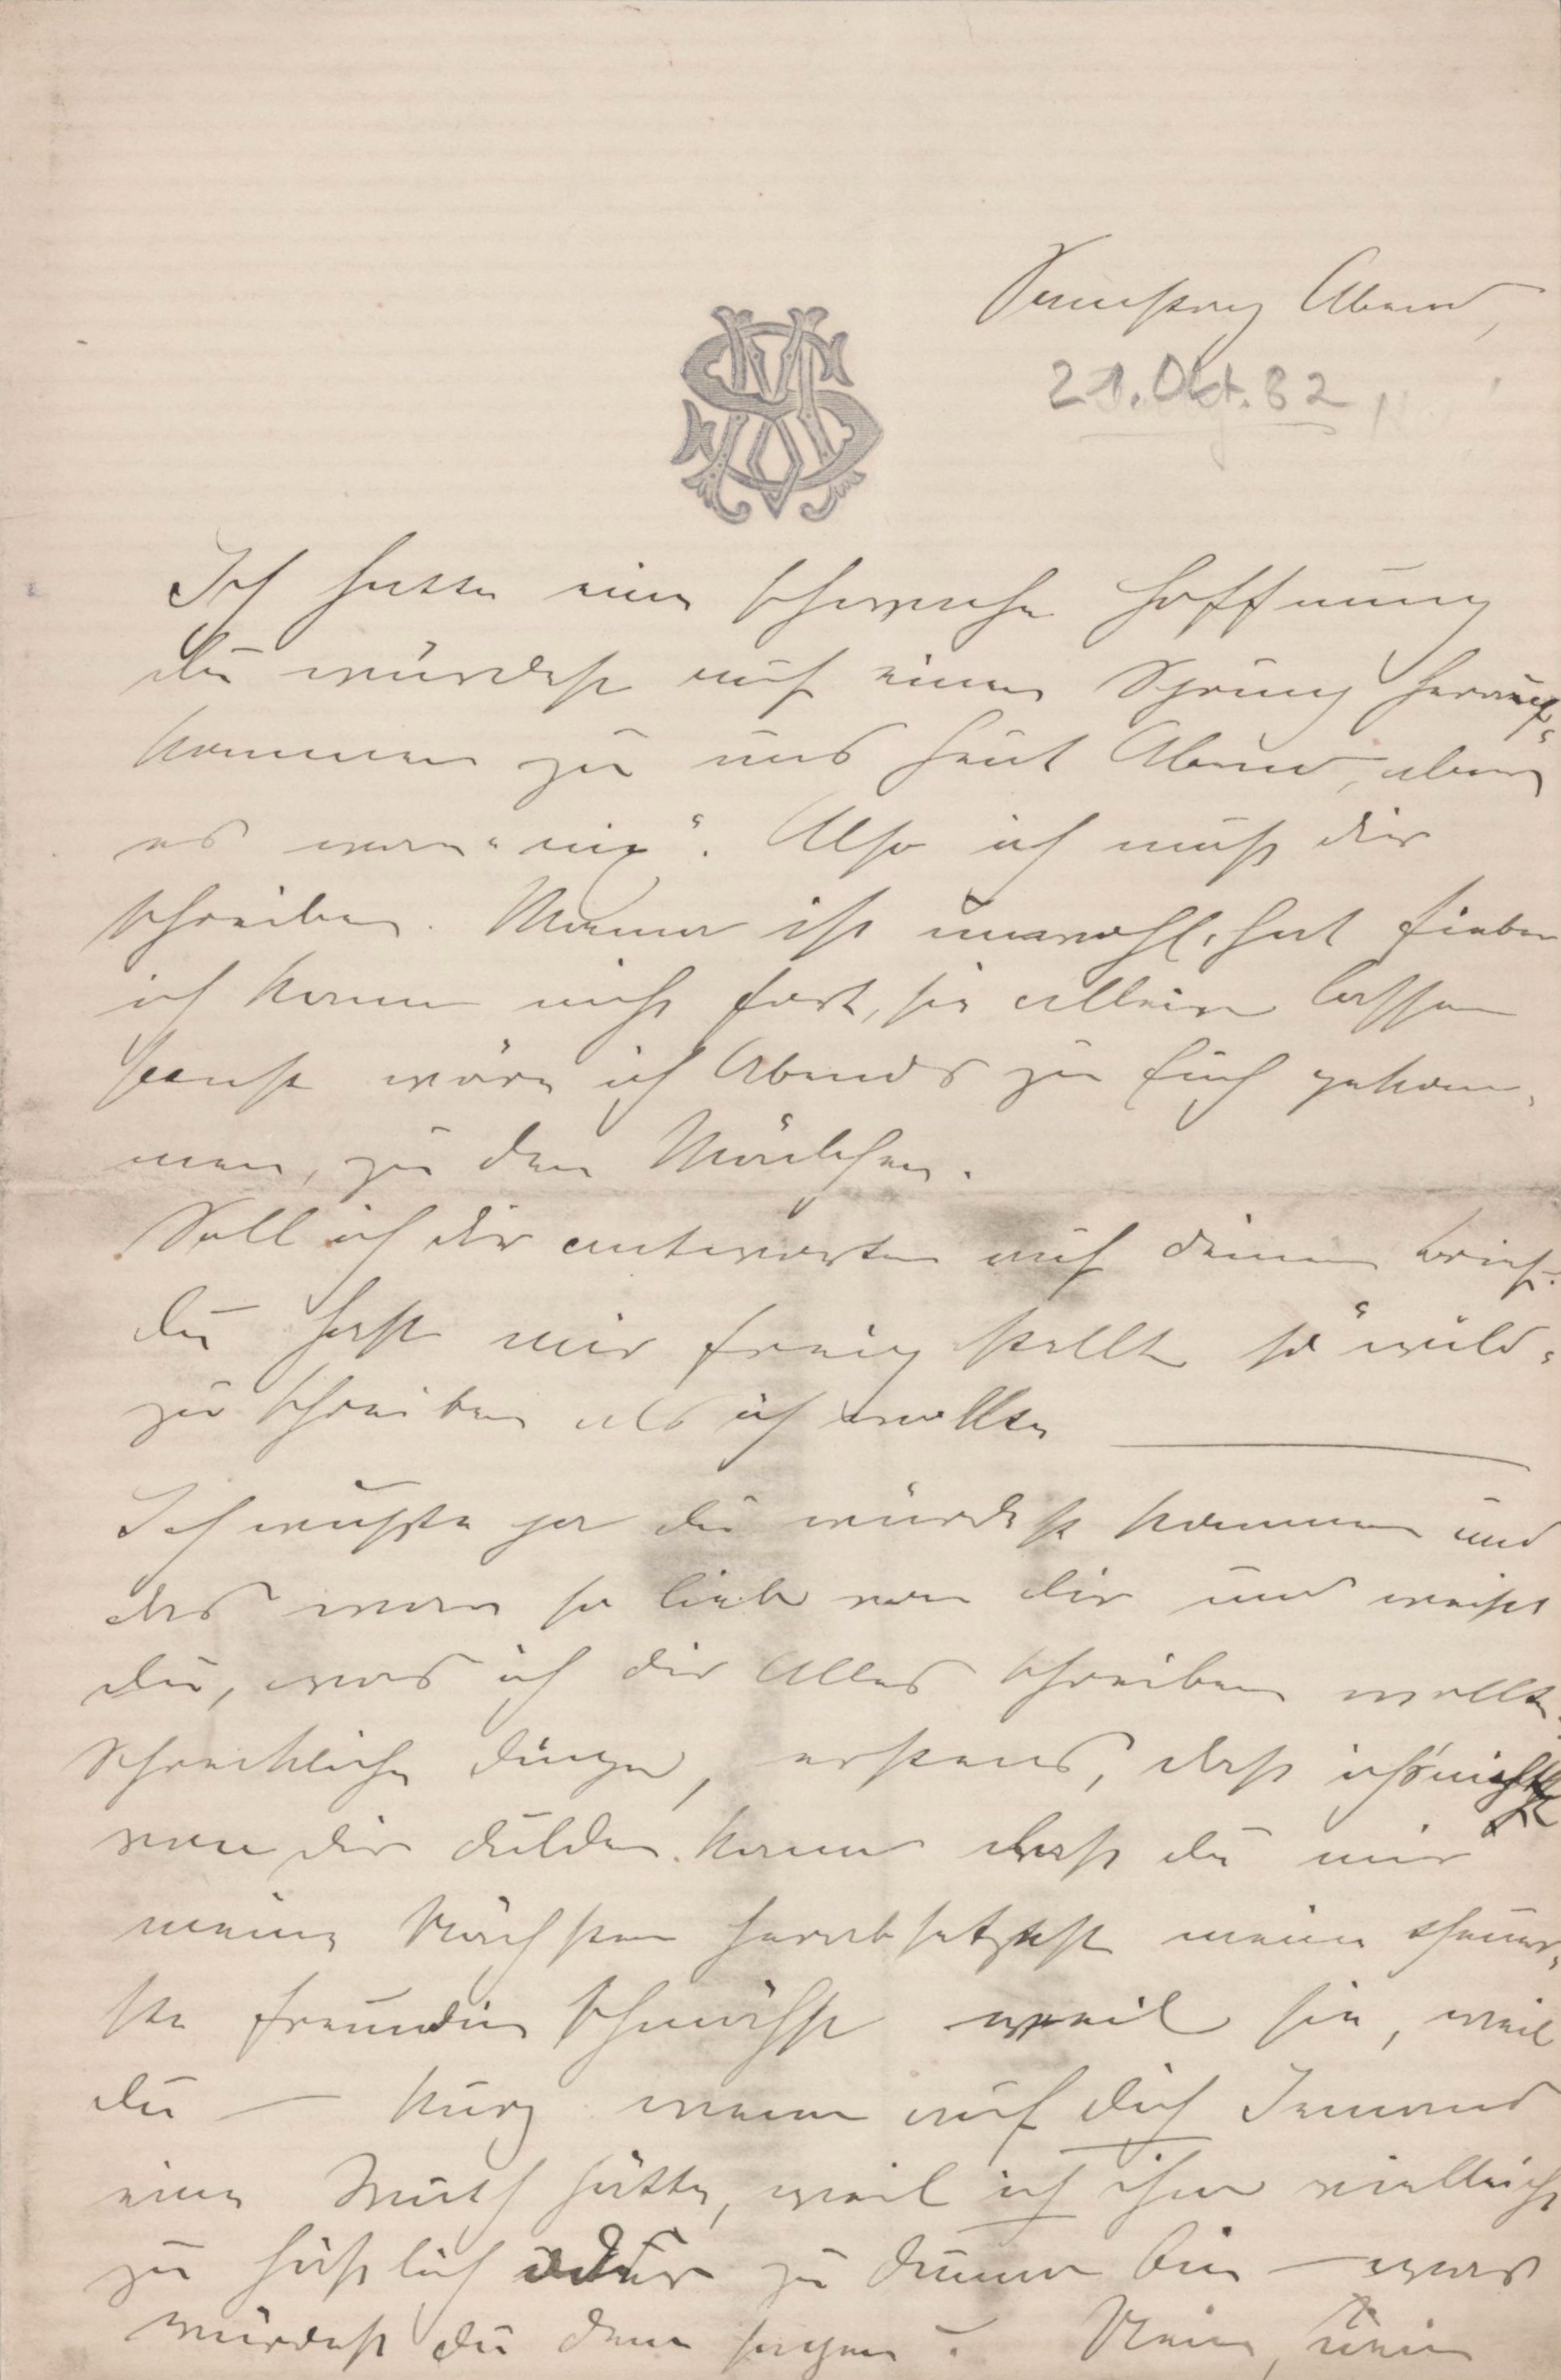 Samstag Abend,
21. Okt. 82
Ich hatte eine schwache Hoffnung
du würdest auf einen Sprung herauf-
kommen zu uns heut Abend, aber
es war "nix". Also ich muß dir
schreiben. Mama ist unwohl, hat Fieber
ich kann nicht fort, sie allein lassen
sonst wäre ich Abends zu Euch gekom-
men, zu den Mädchen.
Soll ich dir antworten auf deinen Brief.
du hast mir freig stellt so "wild"
zu schreiben als ich wollte
Ich wußte ja du würdest kommen und
das war so lieb von dir und weißt
du, was ich dir Alles schreiben wollte.
Schreckliche Dinge, erstens, daß ich's nicht
von dir dulden kann daß du mir
meine Nächsten herabsetzest meine theuer-
ste Freundin schmähst weil sie, weil
du — kurz wenn auf dich Jemand
eine Wuth hätte, weil ich ihm vielleicht
zu häßlich oder zu dumm bin — was
würdest du dann sagen? Nein, nein